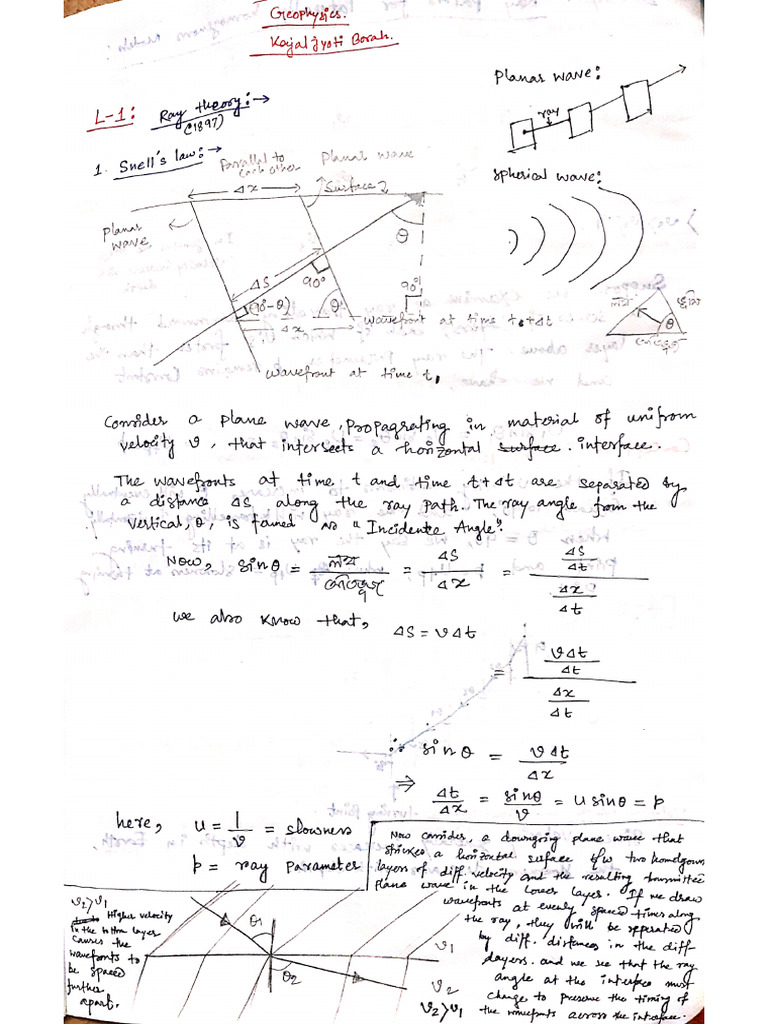 Geophysics.
Kajal Jyoti Borah.
L-1: Ray theory:→
(1897)
Planar wave:
ray
1. Snell's law:→
Parallel to
each other
Planar wave
Δx
Surface 2
Spherical wave:
Planar
wave
θ
ΔS
90°
90°
(90-θ)
θ
Δx
wavefront at time t+Δt
wavefront at time t,
লম্ব
ভূমি
অতিভুজ
θ
Consider a plane wave, propagrating in material of unifrom
velocity v, that intersects a horizontal surface. interface.
The wavefronts at time t and time t+Δt are separated by
a distance ΔS along the ray path. The ray angle from the
vertical, θ, is famed as "Incidente Angle".
Now, sinθ = লম্ব/অতিভুজ = ΔS/Δx = (ΔS/Δt)/(Δx/Δt)
we also know that, ΔS = vΔt
= (vΔt/Δt)/(Δx/Δt)
∴ sinθ = vΔt/Δx
⇒ Δt/Δx = sinθ/v = u sinθ = p
here, u = 1/v = slowness
p = ray parameter
Now consider, a downgoing plane wave that
strickes a horizontal surface b/w two homogenous
layers of diff. velocity and the resulting transmittee
plane wave in the lower layer. If we draw
wavefronts at evenly spaced times along
the ray, they will be seperated
by diff. distances in the diff
layers. and we see that the ray
angle at the interface must
change to preserve the timing of
the wavefronts across the interface.
v2>v1
Higher velocity
in the bottom layer
causes the
wavefronts to
be spaced
further
apart.
θ1
θ2
v1
v2
v2>v1